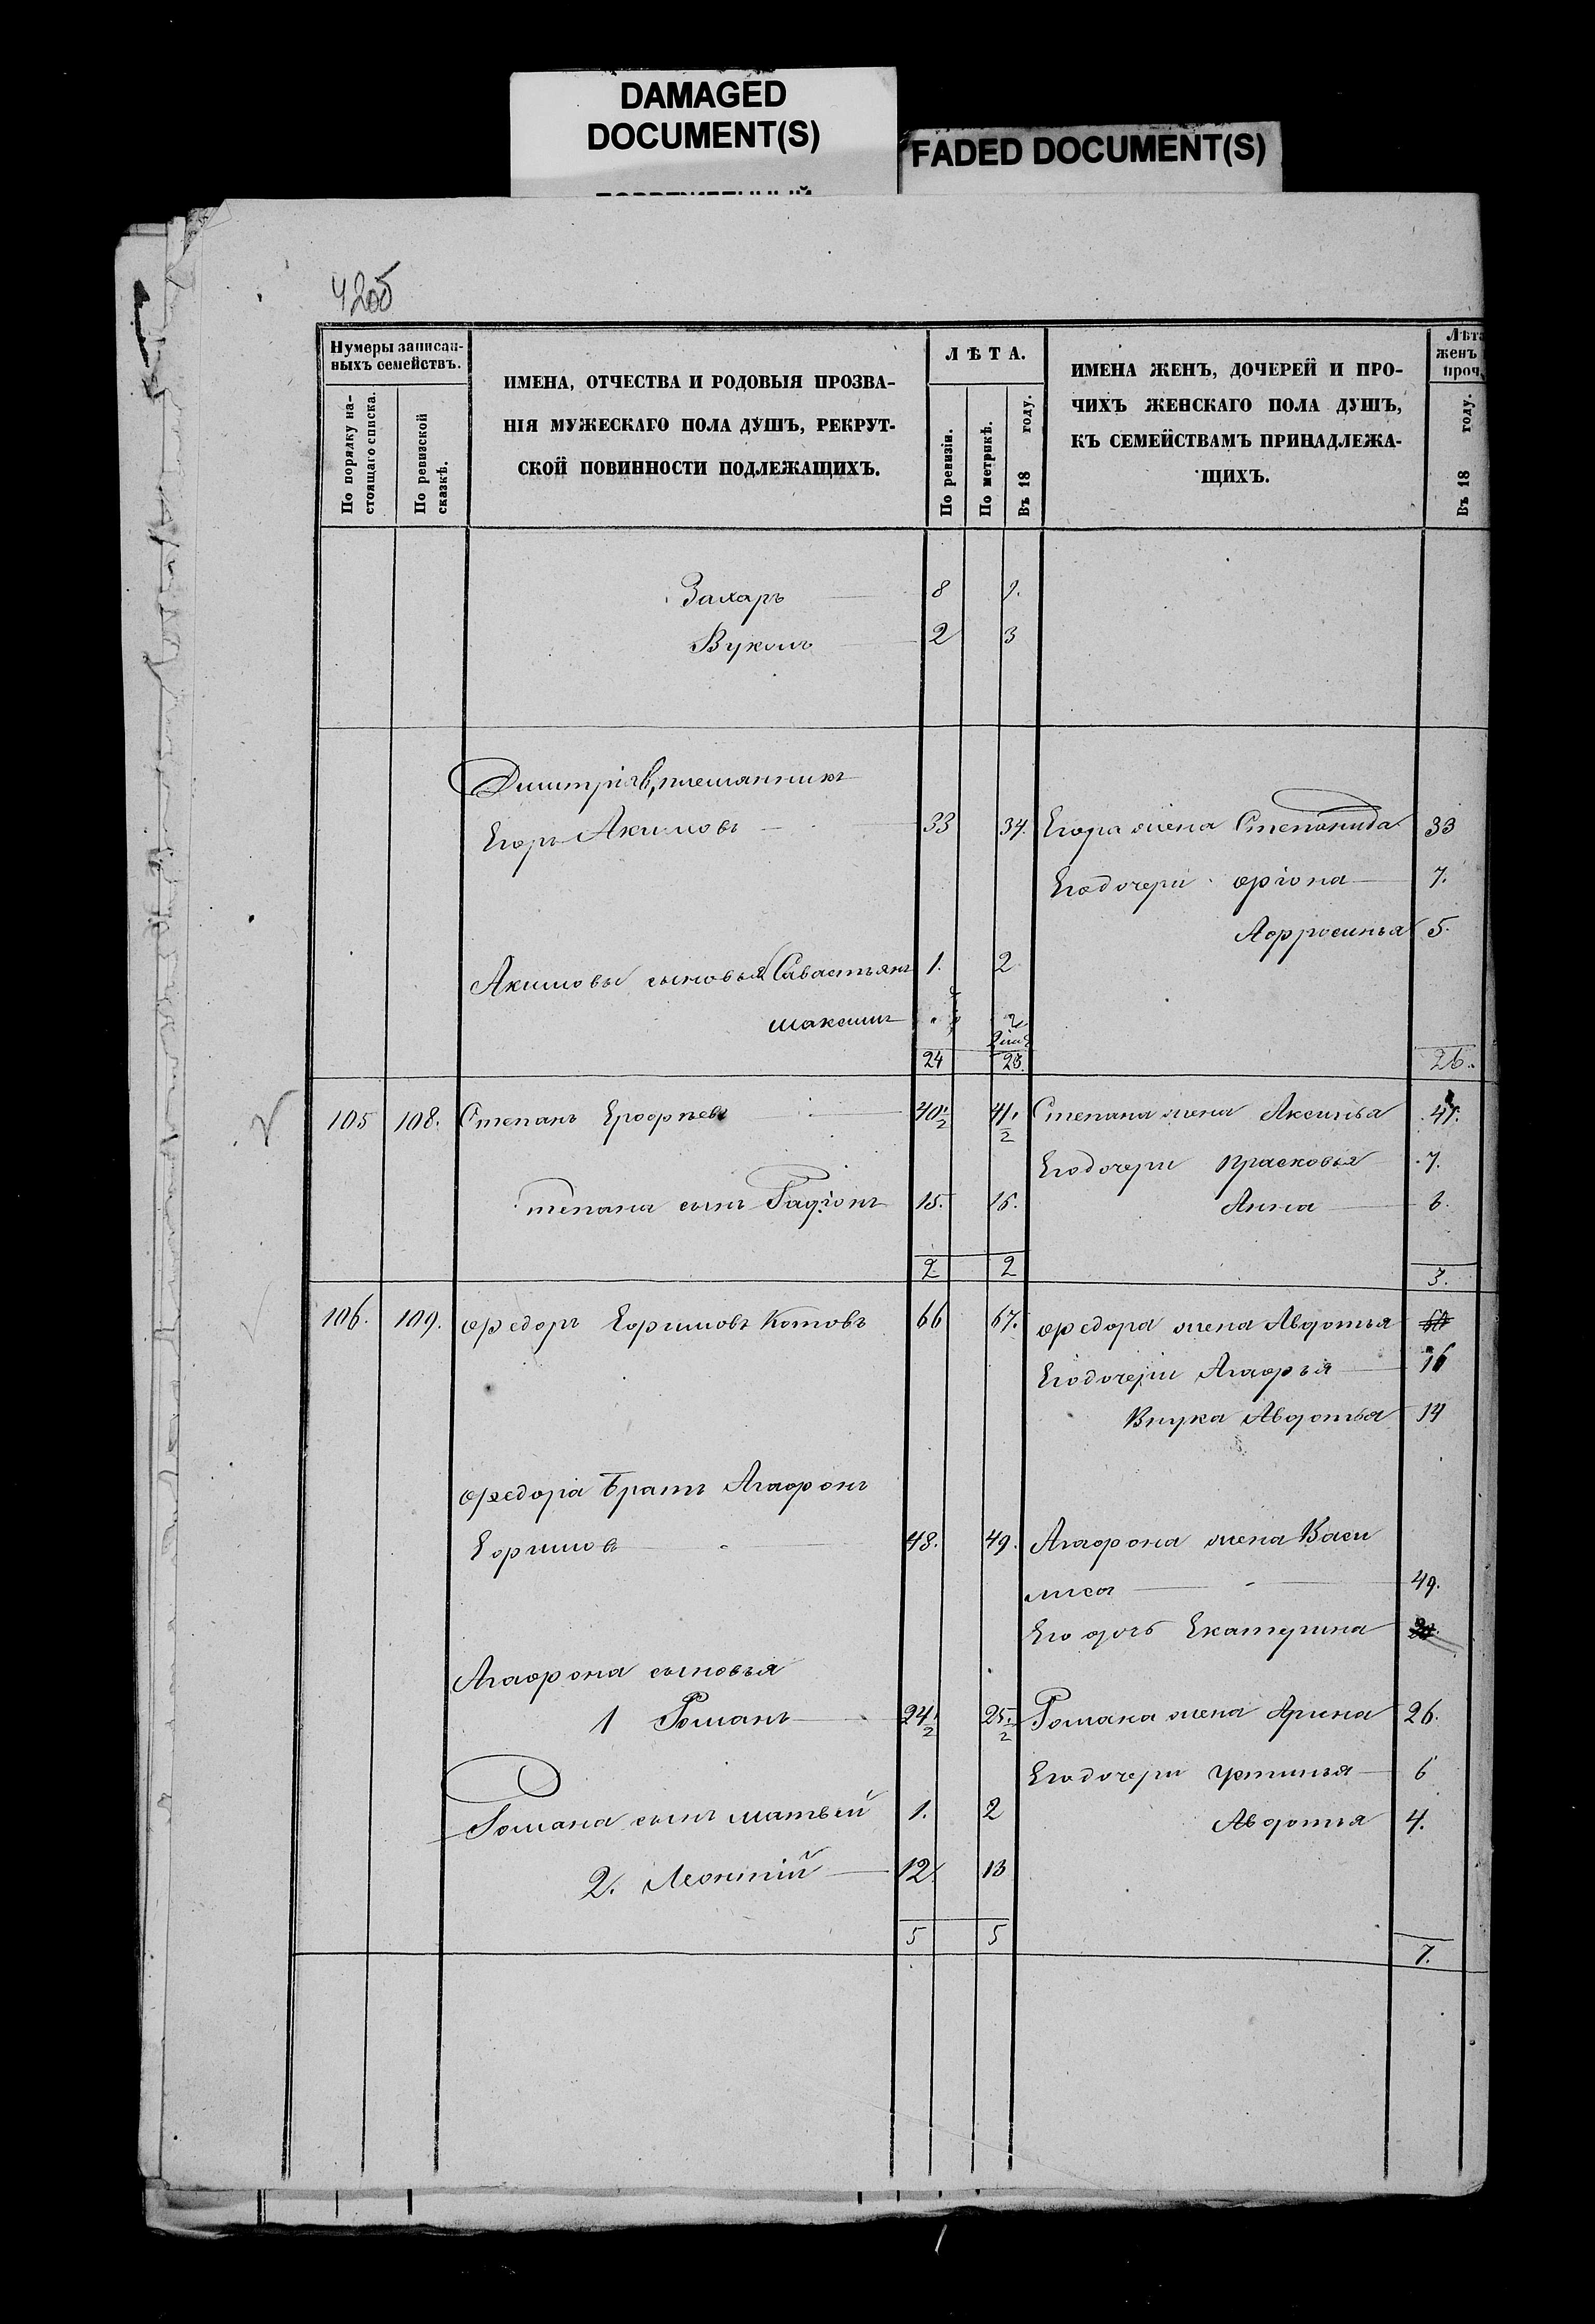 DAMAGED
DOCUMENT(S)
FADED DOCUMENT(S)
420б
Нумеры записан-
ныхъ семействъ.
По порядку на-
стоящаго списка.
По ревизской
сказкѣ.
ИМЕНА, ОТЧЕСТВА И РОДОВЫЯ ПРОЗВА-
НІЯ МУЖЕСКАГО ПОЛА ДУШЪ, РЕКРУТ-
СКОЙ ПОВИННОСТИ ПОДЛЕЖАЩИХЪ.
ЛѢТА.
По ревизіи.
По метрикѣ.
Въ 18 году.
ИМЕНА ЖЕНЪ, ДОЧЕРЕЙ И ПРО-
ЧИХЪ ЖЕНСКАГО ПОЛА ДУШЪ,
КЪ СЕМЕЙСТВАМЪ ПРИНАДЛЕЖА-
ЩИХЪ.
Лѣта
женъ
проч.
Въ 18 году.
Захаръ 8 9.
Вуколъ 2 3
племянникъ
Егоръ Акимовъ 33 34. Егора жена Степанида 33
Его дочери Фіона 7.
Афросинья 5.
Акимовы сыновья Савастьянъ 1. 2
Максимъ
24 26.
105 108. Степанъ Ерофѣевъ 40 1/2 41 1/2 Степана жена Аксинья 41.
Его дочери Прасковья 7.
тепана сынъ Радіонъ 15. 16. Анна
2 2 3.
106. 109. Федоръ Ефимовъ Котовъ 66 67. Федора жена Авдотья
Его дочери Агафья 16
Внука Авдотья 14
Федора Братъ Агафонъ
Ефимовъ 48. 49. Агафона жена Васи
лиса 49.
Его дочь Екатерина
Агафона сыновья
1 Романъ 24 1/2 25 1/2 Романа жена Арина 26.
Его дочери Устинья 6
Романа сынъ Матвей 1. 2 Авдотья 4.
2. Леонтій 12. 13
5 5 7.